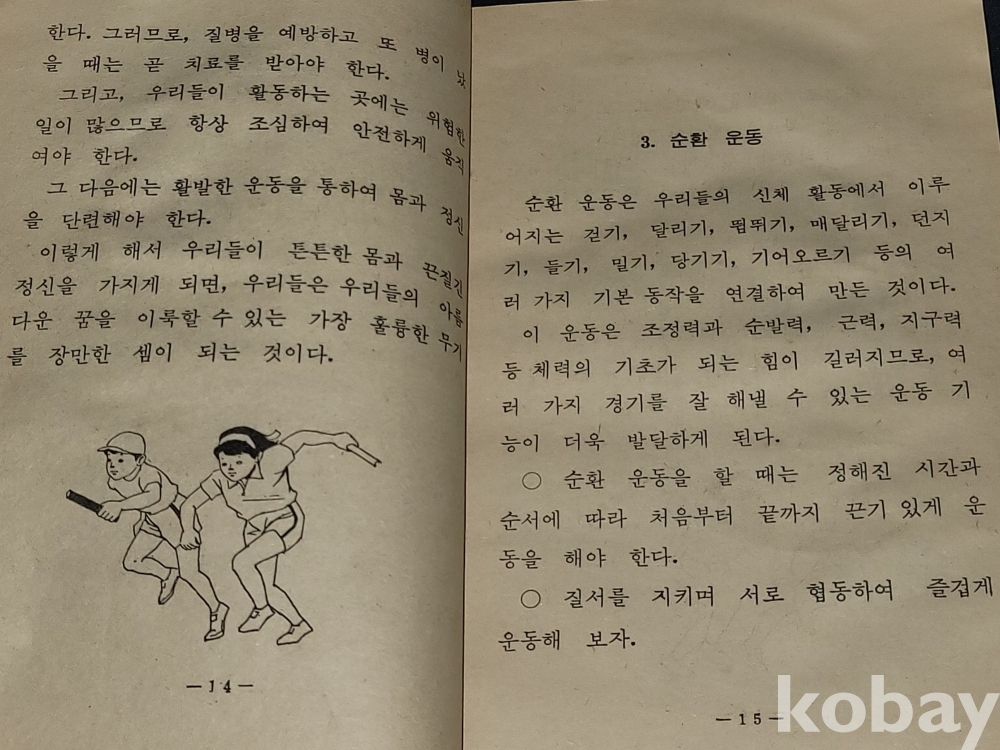 한다. 그러므로, 질병을 예방하고 또 병이 났
을 때는 곧 치료를 받아야 한다.
그리고, 우리들이 활동하는 곳에는 위험한
일이 많으므로 항상 조심하여 안전하게 움직
여야 한다.
그 다음에는 활발한 운동을 통하여 몸과 정신
을 단련해야 한다.
이렇게 해서 우리들이 튼튼한 몸과 끈질긴
정신을 가지게 되면, 우리들은 우리들의 아름
다운 꿈을 이룩할 수 있는 가장 훌륭한 무기
를 장만한 셈이 되는 것이다.
—14—
3. 순환 운동
순환 운동은 우리들의 신체 활동에서 이루
어지는 걷기, 달리기, 뜀뛰기, 매달리기, 던지
기, 들기, 밀기, 당기기, 기어오르기 등의 여
러 가지 기본 동작을 연결하여 만든 것이다.
이 운동은 조정력과 순발력, 근력, 지구력
등 체력의 기초가 되는 힘이 길러지므로, 여
러 가지 경기를 잘 해낼 수 있는 운동 기
능이 더욱 발달하게 된다.
○ 순환 운동을 할 때는 정해진 시간과
순서에 따라 처음부터 끝까지 끈기 있게 운
동을 해야 한다.
○ 질서를 지키며 서로 협동하여 즐겁게
운동해 보자.
—15—
kobay